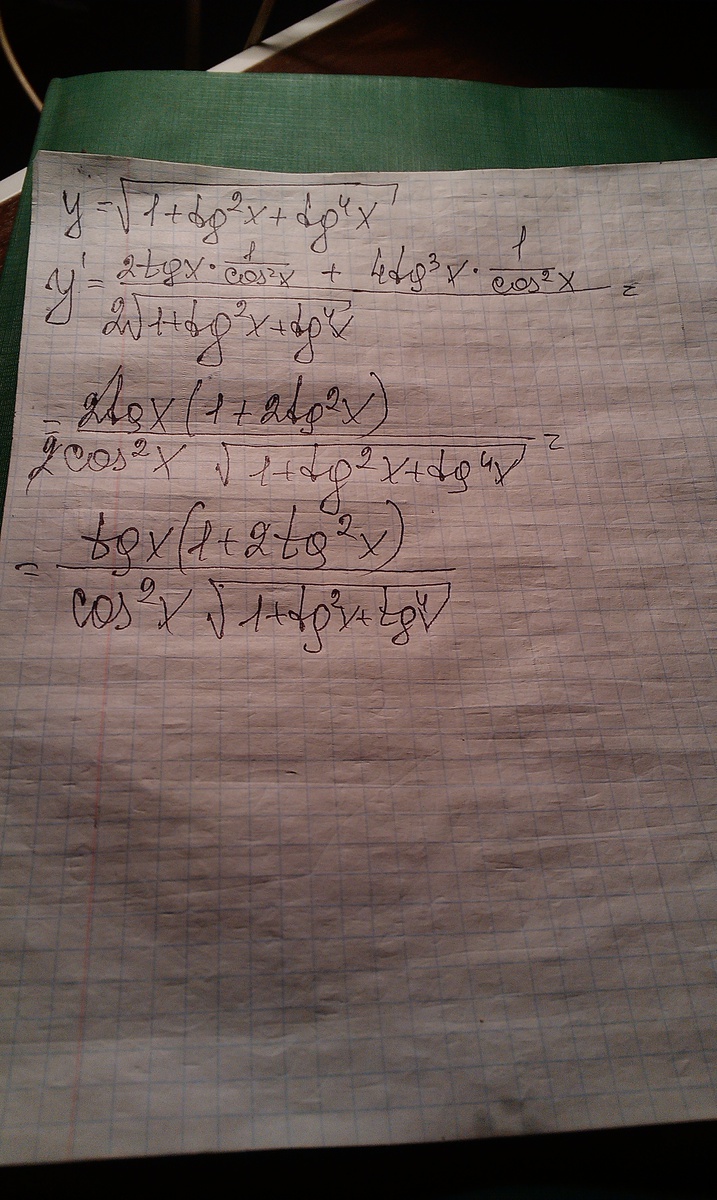 y = √(1+tg²x+tg⁴x)
y' = (2tgx · 1/cos²x + 4tg³x · 1/cos²x) / (2√(1+tg²x+tg⁴x)) =
= 2tgx(1+2tg²x) / (2cos²x √(1+tg²x+tg⁴x)) =
= tgx(1+2tg²x) / (cos²x √(1+tg²x+tg⁴))